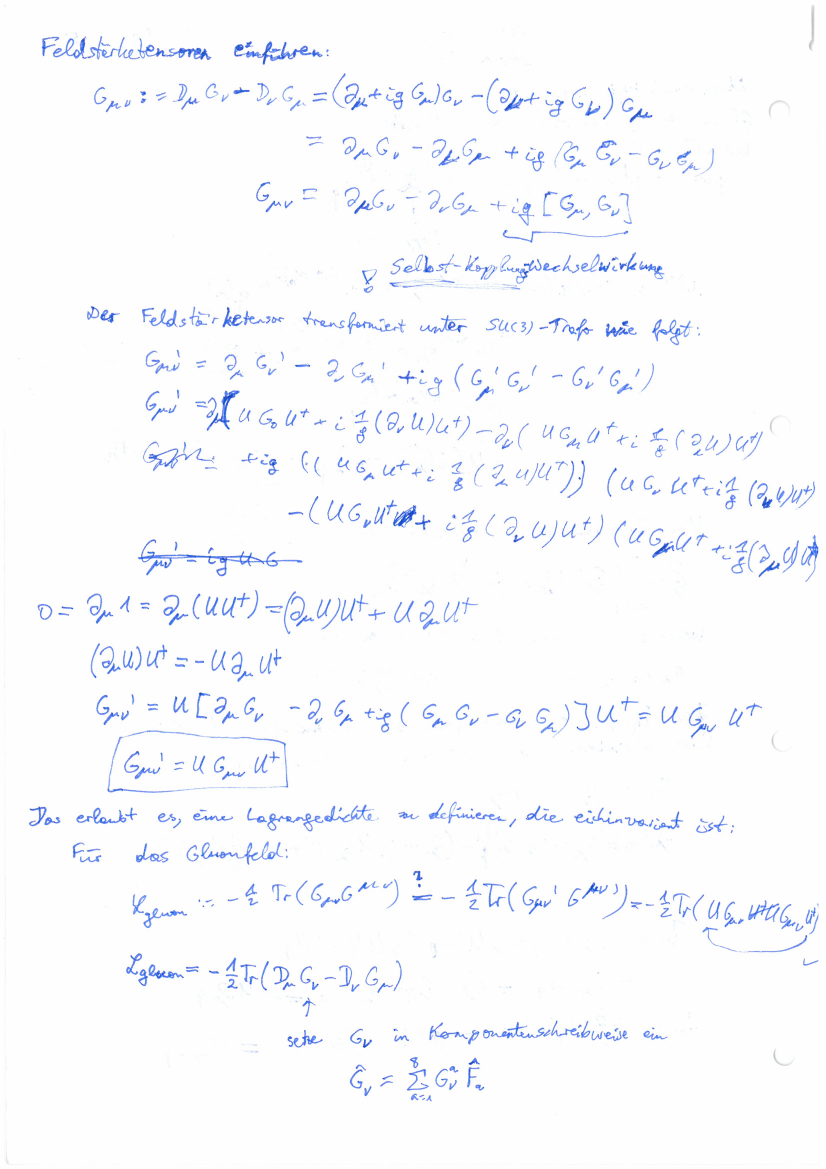 Feldstärketensoren einführen:
G_μν := D_μ G_ν - D_ν G_μ = (∂_μ + ig G_μ) G_ν - (∂_ν + ig G_ν) G_μ
= ∂_μ G_ν - ∂_ν G_μ + ig (G_μ G_ν - G_ν G_μ)
G_μν = ∂_μ G_ν - ∂_ν G_μ + ig [G_μ, G_ν]
! Selbst-Kopplung Wechselwirkung
Der Feldstärketensor transformiert unter SU(3)-Trafo wie folgt:
G_μν' = ∂_μ G_ν' - ∂_ν G_μ' + ig (G_μ' G_ν' - G_ν' G_μ')
G_μν' = ∂_μ( U G_ν U† + i 1/g (∂_ν U) U†) - ∂_ν( U G_μ U† + i 1/g (∂_μ U) U†)
+ig (( U G_μ U† + i 1/g (∂_μ U) U†)) (U G_ν U† + i 1/g (∂_ν U) U†)
-( U G_ν U† + i 1/g (∂_ν U) U†) (U G_μ U† + i 1/g (∂_μ U) U†
G_μν' = ig U G
0 = ∂_μ 1 = ∂_μ (UU†) = (∂_μ U) U† + U ∂_μ U†
(∂_μ U) U† = - U ∂_μ U†
G_μν' = U [∂_μ G_ν - ∂_ν G_μ + ig ( G_μ G_ν - G_ν G_μ)] U† = U G_μν U†
G_μν' = U G_μν U†
Das erlaubt es, eine Lagrangedichte zu definieren, die eichinvariant ist:
Für das Gluonfeld:
L_gluon := - 1/2 Tr (G_μν G^μν) =! - 1/2 Tr( G_μν' G^μν') = - 1/2 Tr( U G_μν U† U G_μν U†)
L_gluon = - 1/2 Tr( D_μ G_ν - D_ν G_μ)
↑
setze G_ν in Komponentenschreibweise ein
Ĝ_ν = Σ_{a=1}^{8} G_ν^a F̂_a